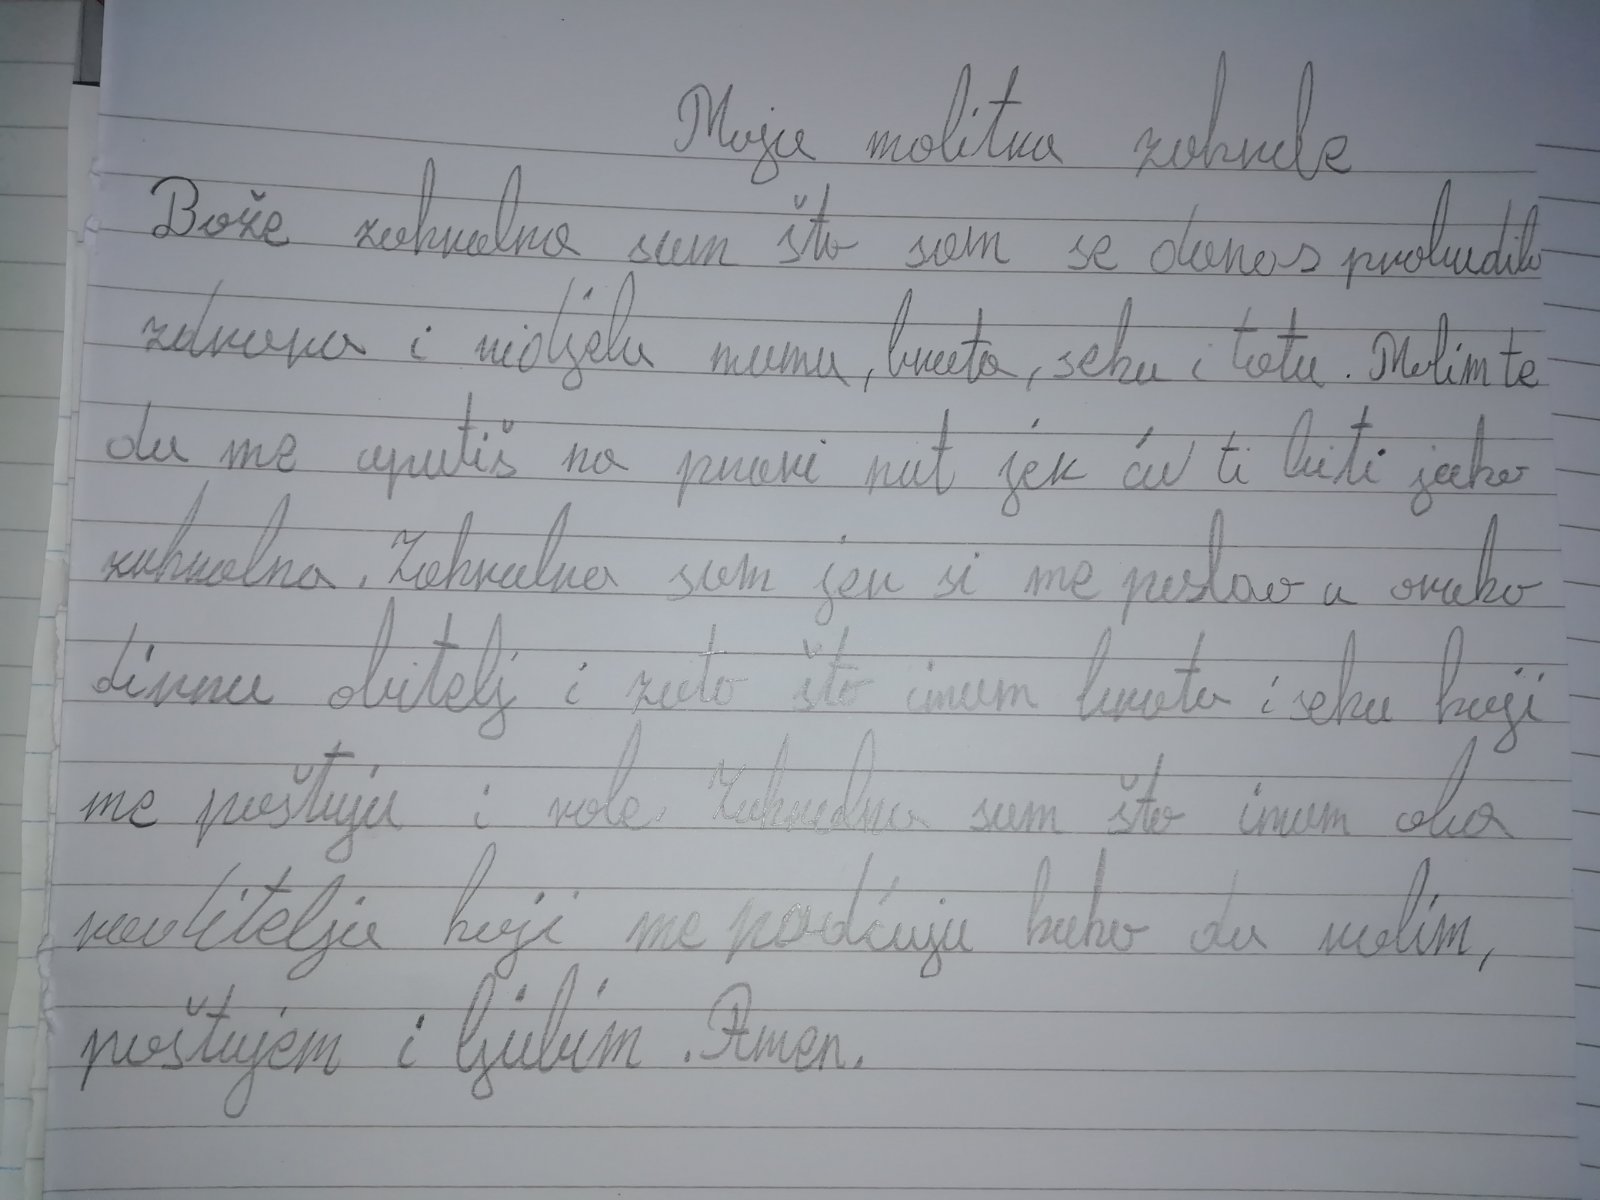 Moja molitva zahvale
Bože zahvalna sam što sam se danas probudila
zdrava i vidjela mamu, brata, seku i tatu. Molim te
da me uputiš na pravi put jer ću ti biti jako
zahvalna. Zahvalna sam jer si me poslao u ovako
divnu obitelj i zato što imam brata i seku koji
me poštuju i vole. Zahvalna sam što imam oba
roditelja koji me podučuju kako da volim,
poštujem i ljubim. Amen.